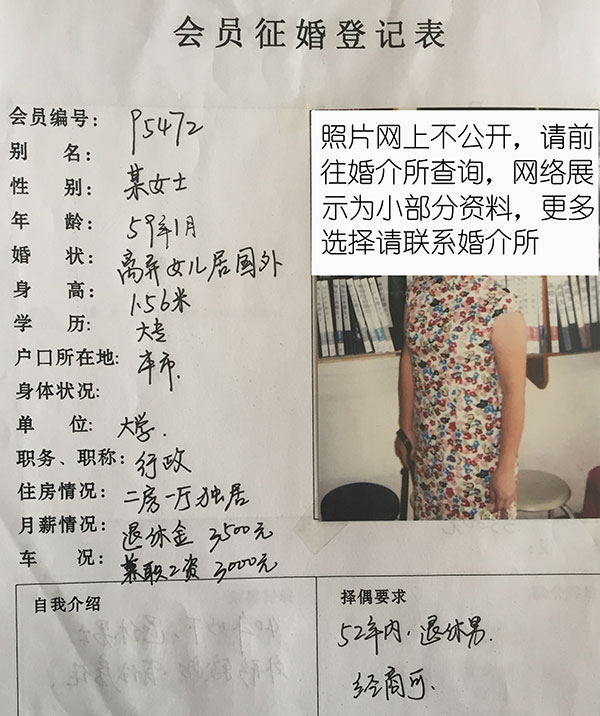 会员征婚登记表
会员编号: P5472
别 名:
性 别: 某女士
年 龄: 59年1月
婚 状: 离异女儿居国外
身 高: 1.56米
学 历: 大专
户口所在地: 本市.
身体状况:
单 位: 大学.
职务、职称: 行政
住房情况: 二房一厅独居
月薪情况: 退休金 3500元
车 况: 兼职工资 3000元
照片网上不公开，请前
往婚介所查询，网络展
示为小部分资料，更多
选择请联系婚介所
自我介绍
择偶要求
52年内.退休男.
经商可.